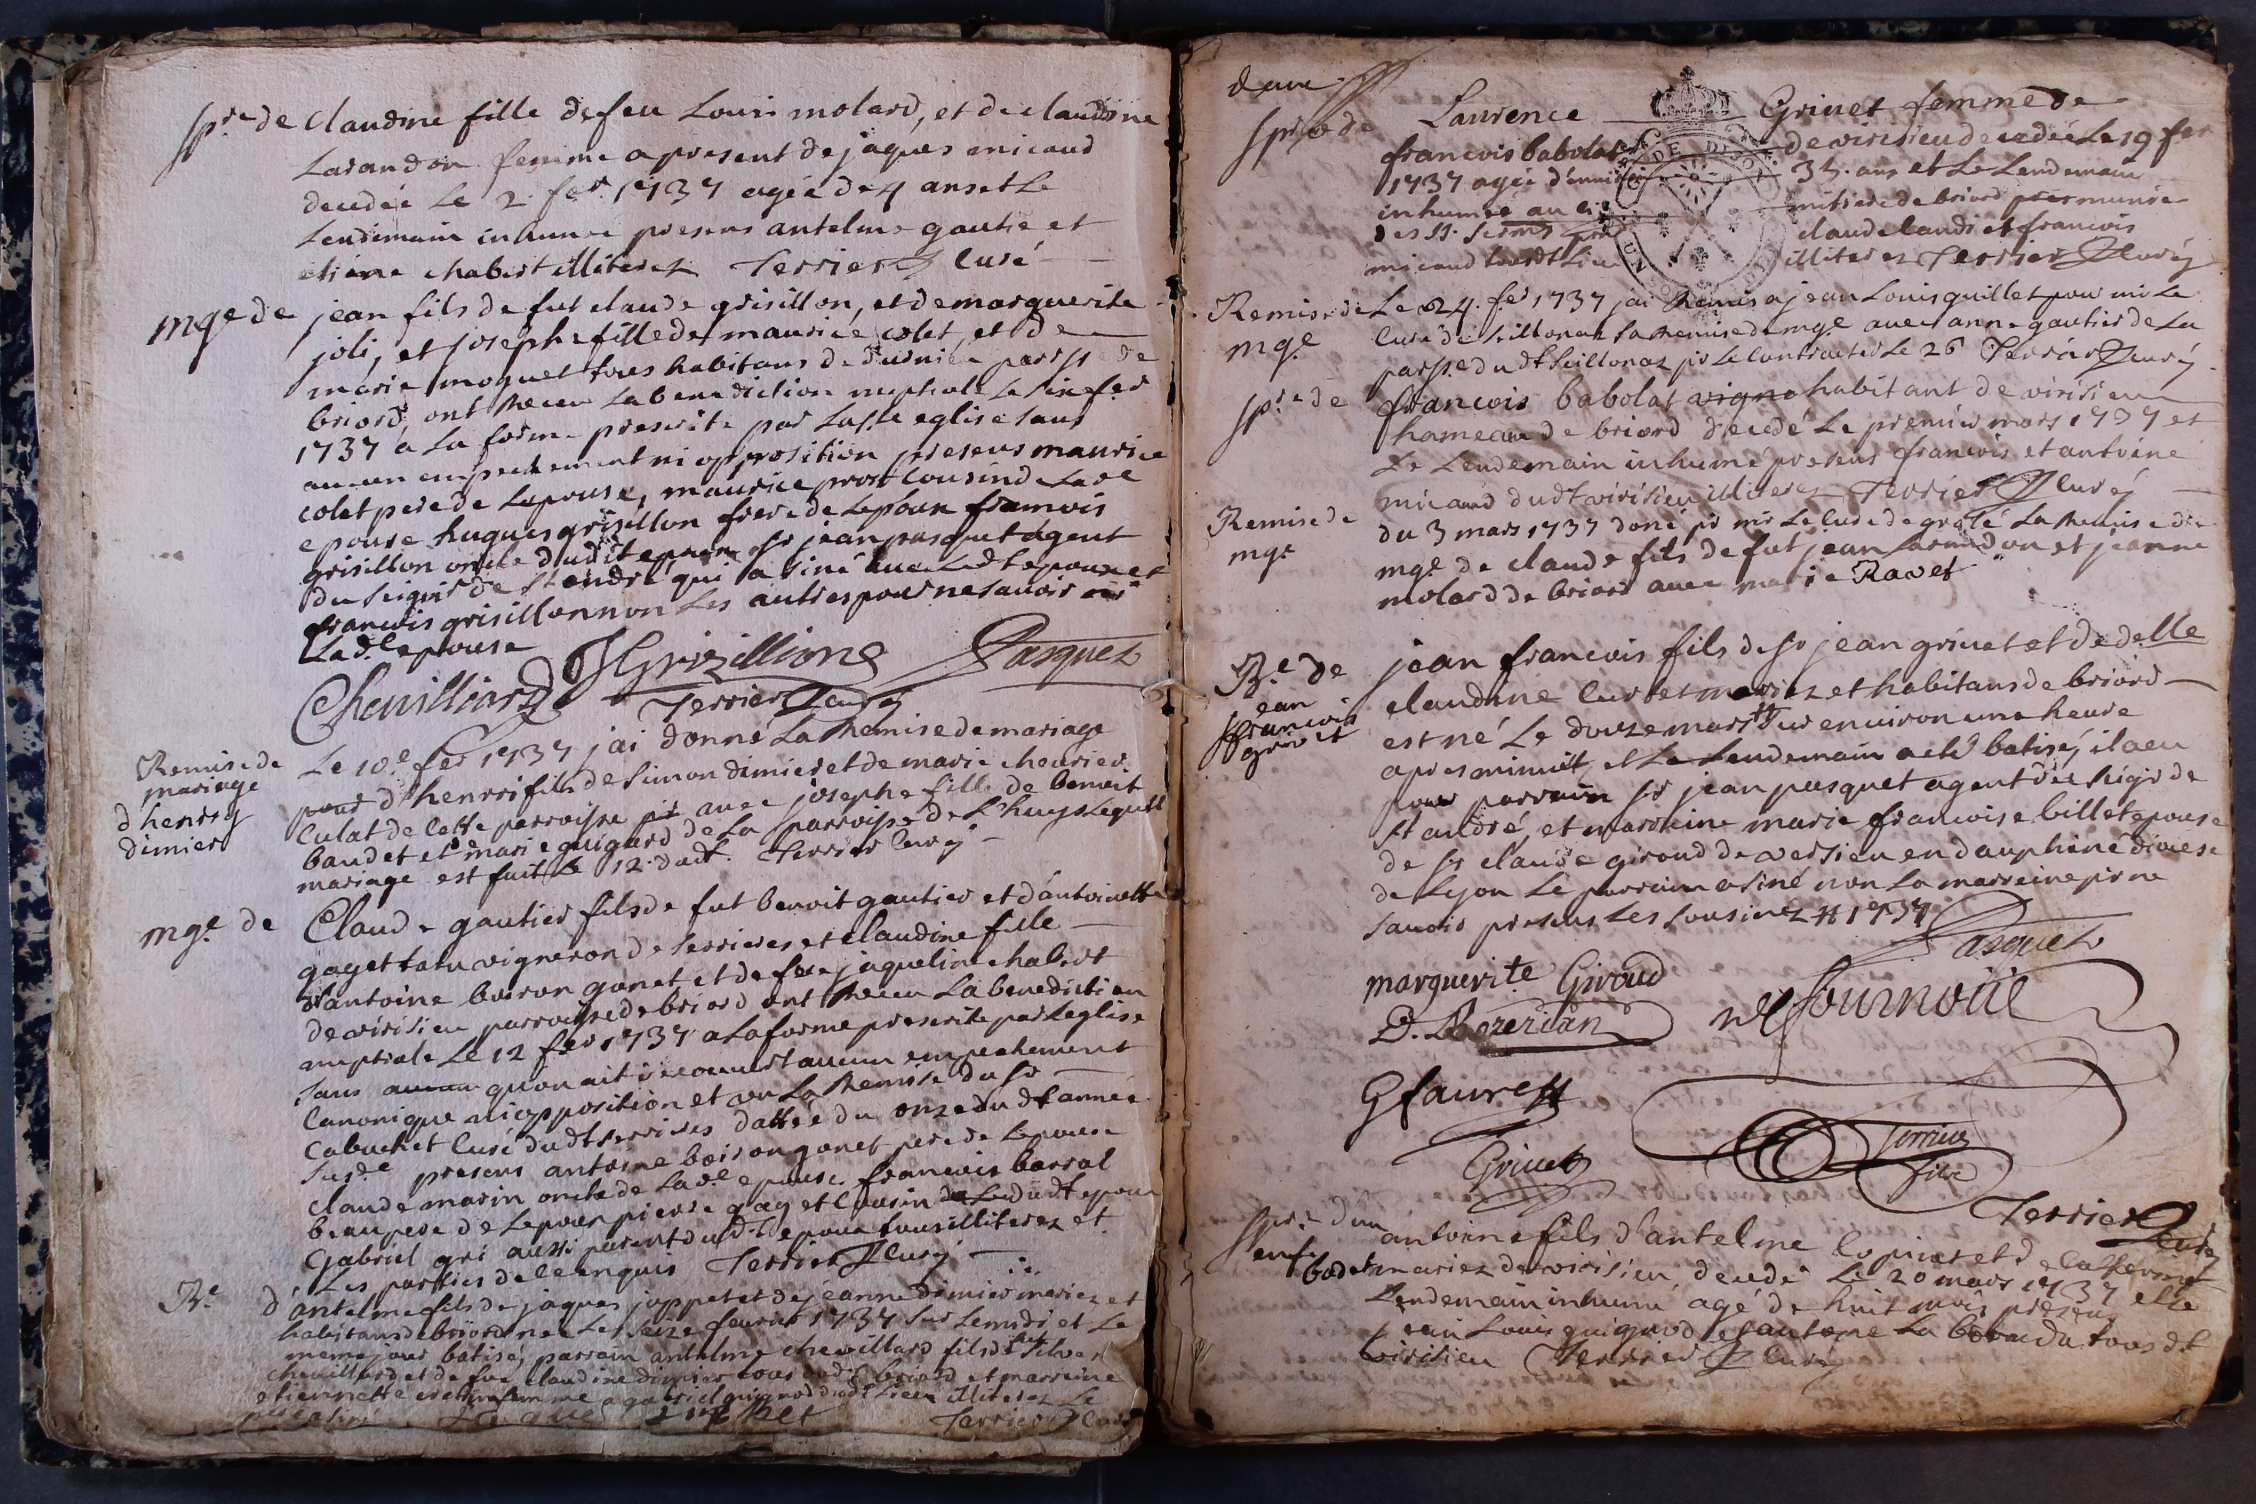 spre de claudine fille de feu Louis molard, et de claudine
Larandon femme a present de jaques micaud
decedée Le 2. fer 1737 agée de 4 ans et Le
Lendemain inhumee presens antelme gautié et
etiene chabert illiterez Terrier Curé
mge de jean fils de fut claude grisillon, et de marguerite
joli, et josephe fille de maurice colet, et de
marie moquet tous habitans de parsse de
briord, ont recu La benediction nuptiale Le six fer
1737 a La forme prescrite par La ste eglise sans
aucun empechement ni opposition presens maurice
colet pere de Lepouse, maurice prost cousin de Lade
epouse hugues grisillon frere de Lepoux francois
grisillon oncle dudit epoux sr jean pasquet agent
du seignr de st andré qui a siné avec Ledt epoux et
francois grisillon non Les autres pour ne savoir
Lade epouse
Chevilliard JGrizillione Pasquet
Terrier Curé
Remise de mariage d'henry dimier
Le 10e fer 1737 j'ai donné La Remise de mariage
pour d'henri fils de Simon dimier et de marie
de Cette parroisse avec josephe fille de benoit
baudet et marie guigard de La parroisse de Lhuys Lequel
mariage est fait Le 12. dudt. Terrier Curé
mge de Claude gautier fils de fut benoit gautier et d'antoinette
gaget vigneron de serrieres et claudine fille
d'antoine boiron ganet et de feue jaqueline chabert
de virisieu parroisse de briord ont recu La benediction
nuptiale Le 12 fer 1737 a La forme prescrite par Leglise
sans aucun qu'on ait decouvert aucun empechement
Canonique ni opposition et vu La Remise du sr
Cabuchet Curé dudt serrieres dattée du onze du dt année
susde presens antoine boiron ganet pere de Lepouse
claude marin oncle de Lade epouse francois barral
beaupere de Lepoux pierre gaget Cousin de Ludt epoux
Gabriel gri aussi parent dudt epoux tous illiterez et
Les parties de ce enquis Terrier Curé
Be d'antelme fils de jaques joppet et de jeanne dimier mariez et
habitans de briord né Le seize fevrier 1737 sur Lemidi et Le
meme jour batisé, parrain antelme chevillard fils de fut
chevillard et de feue claudine dimier tous dudt briord et marreine
etiennette femme a gabriel guignod dudt Lieu illiterez
Terrier Curé
deux
spre de Laurence Grinet femme de
francois babolat de virisieu decedée Le 19 fer
1737 agée d'environ 35. ans et Le Lendemain
inhumée au cimetiere de briord munie
des st. claude Landi et francois
micaud illiterez Terrier Curé
Remise de mge
Le 24. fer 1737 j'ai Remis a jean Louis guillet pour mr Le
Curé de seillonaz La Remise de mge avec anne gautier de La
parsse dudt seillonaz pr Le Contracter Le 26 Terrier Curé
spre de francois babolat vigno habitant de virisieu
hameau de briord decedé Le premier mars 1737 et
Le Lendemain inhumé presens francois et antoine
micaud dudt virisieu illiterez Terrier Curé
Remise de mge
du 3 mars 1737 doné pr mr Le Curé de La Remise de
mge de claude fils de fut jean Larandon et jeanne
molard de briord avec marie Ravet
Be de jean francois grinet
jean francois fils de sr jean grinet et de delle
claudine mariez et habitans de briord
est né Le douze mars # sur environ une heure
apres minuit, et Le Lendemain a eté batisé, il a eu
pour parrain sr jean pasquet agent du seigr de
st andré, et marreine marie francoise billet epouse
de sr claude giroud de versieu en dauphiné diocese
de Lyon Le parrain a siné non La marreine pr ne
savoir presens Les sousinez # 1737
Pasquet
marguerite Giroud
D. Bozerian
Gfaure
Grinet
Terrier
Terrier Curé
spre d'un enf.
antoine fils d'antelme
bodet mariez de virisieu, decedé Le 20 mars 1737 et Le
Lendemain inhumé agé de huit mois presens
jean Louis guignod et antoine La tous dt
virisieu Terrier Curé